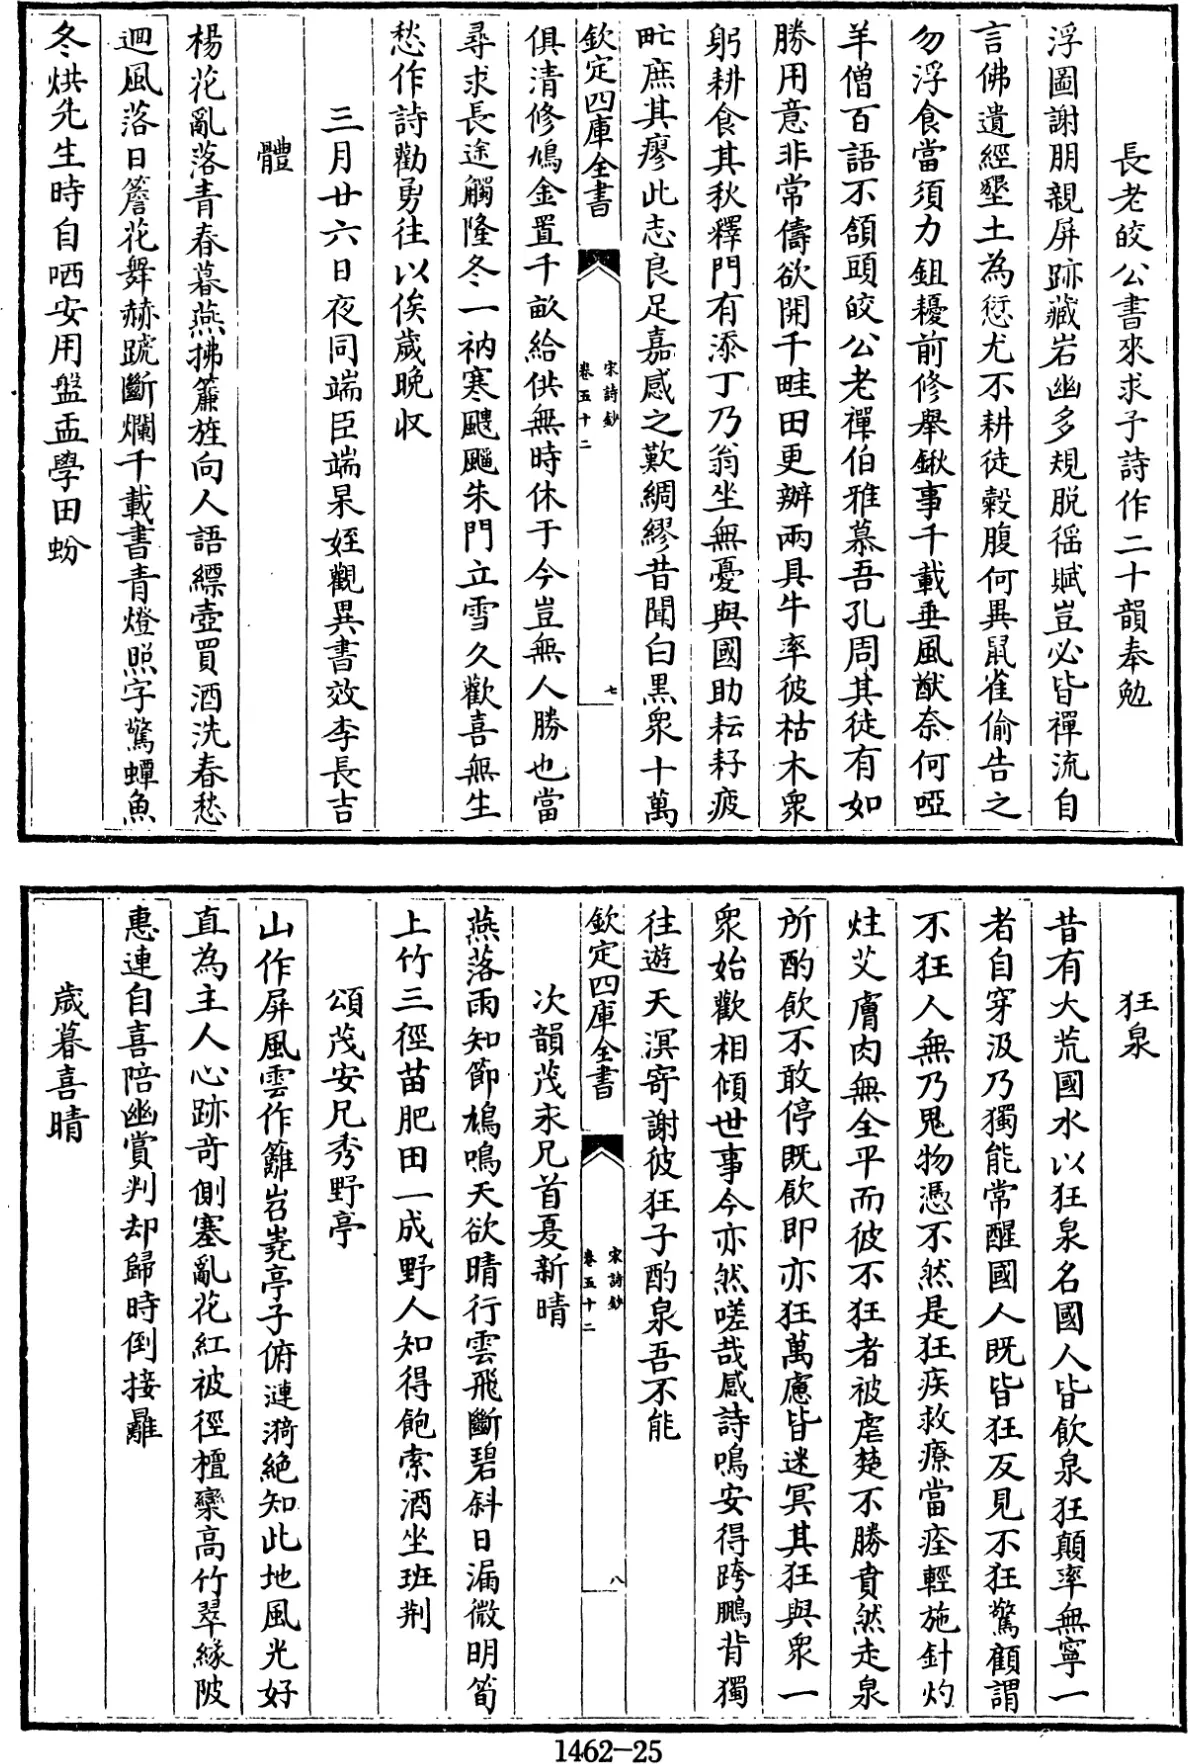 長老皎公書來求予詩作二十韻奉勉
浮圖謝朋親屏跡藏岩幽多規脫徭賦豈必皆禪流自
言佛遺經墾土為愆尤不耕徒穀腹何異鼠雀偷告之
勿浮食當須力鉏耰前修舉鍬事千載垂風猷奈何啞
羊僧百語不頷頭皎公老禪伯雅慕吾孔周其徒有如
勝用意非常儔欲開千畦田更辦兩具牛率彼枯木衆
躬耕食其秋釋門有添丁乃翁坐無憂與國助耘耔疲
甿庶其廖此志良足嘉感之歎綢繆昔聞白黑衆十萬
欽定四庫全書
宋詩鈔
卷五十二
七
俱清修鳩金置千畝給供無時休于今豈無人勝也當
尋求長途觸隆冬一衲寒颼飀朱門立雪久歡喜無生
愁作詩勸勇往以俟歲晚收
三月廿六日夜同端臣端杲姪觀異書效李長吉
體
楊花亂落青春暮燕拂簾旌向人語縹壺買酒洗春愁
迴風落日簷花舞赫䟽斷爛千載書青燈照字驚蟫魚
冬烘先生時自哂安用盤盂學田蚡
狂泉
昔有大荒國水以狂泉名國人皆飲泉狂顛率無寧一
者自穿汲乃獨能常醒國人既皆狂反見不狂驚顧謂
不狂人無乃鬼物憑不然是狂疾救療當痊輕施針灼
炷艾膚肉無全平而彼不狂者被虐楚不勝賁然走泉
所酌飲不敢停既飲即亦狂萬慮皆迷冥其狂與衆一
衆始歡相傾世事今亦然嗟哉感詩鳴安得跨鵬背獨
往遊天溟寄謝彼狂子酌泉吾不能
欽定四庫全書
宋詩鈔
卷五十二
八
次韻茂求兄首夏新晴
燕落雨知節鳩鳴天欲晴行雲飛斷碧斜日漏微明筍
上竹三徑苗肥田一成野人知得飽索酒坐班荆
頌茂安兄秀野亭
山作屏風雲作籬岧嶤亭子俯漣漪絶知此地風光好
直為主人心跡竒側塞亂花紅被徑檀欒高竹翠緣陂
惠連自喜陪幽賞判却歸時倒接䍦
歲暮喜晴
1462-25